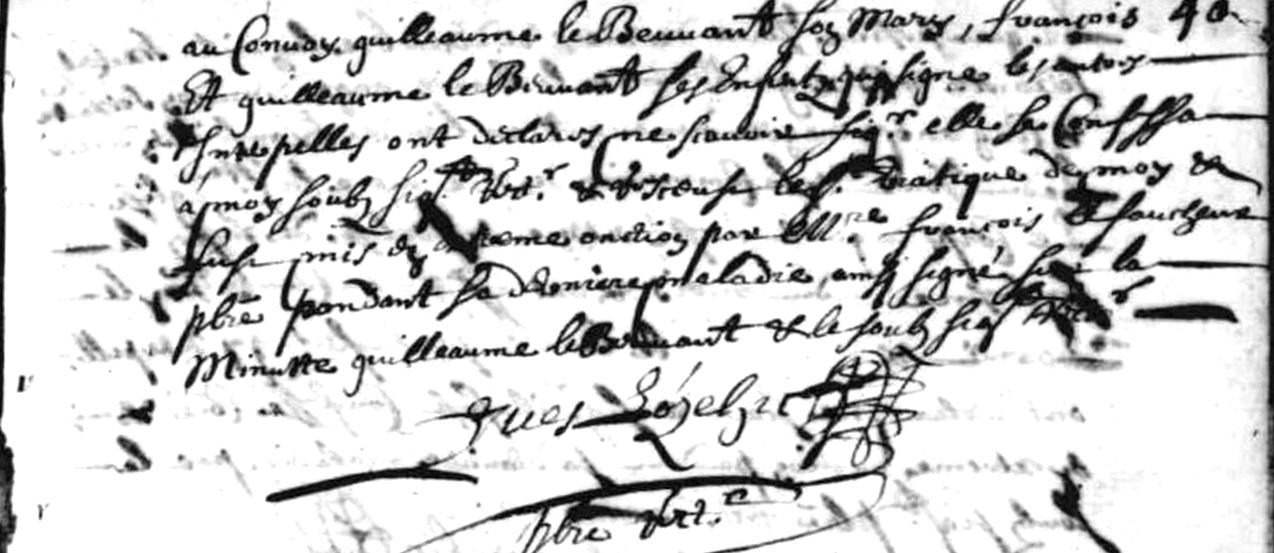 au Convoy guilleaume le Beuuant son Mary, françois
Et guilleaume le Beuuant ses Enfentz qui signe les autres
Interpelles ont declares ne scauoir sig.r elle se Confessa
a moy soubz sig.t Rect.r & Receust le s.t viatique de moy &
fust mis en extreme onction par M.re françois le faucheur
pbre pendant sa derniere maladie, ainsy signé sur la
Minutte guilleaume le Beuuant & le soubz sig.t Rect.r
Yues
pbre Rect.r